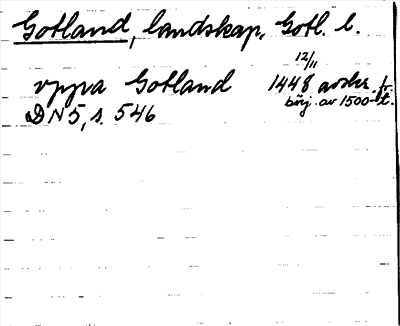 Gotland, landskap, Gotl. l.
12/11
vppa Gotland 1448 avskr. fr.
börj. av 1500-t.
DN 5, s. 546